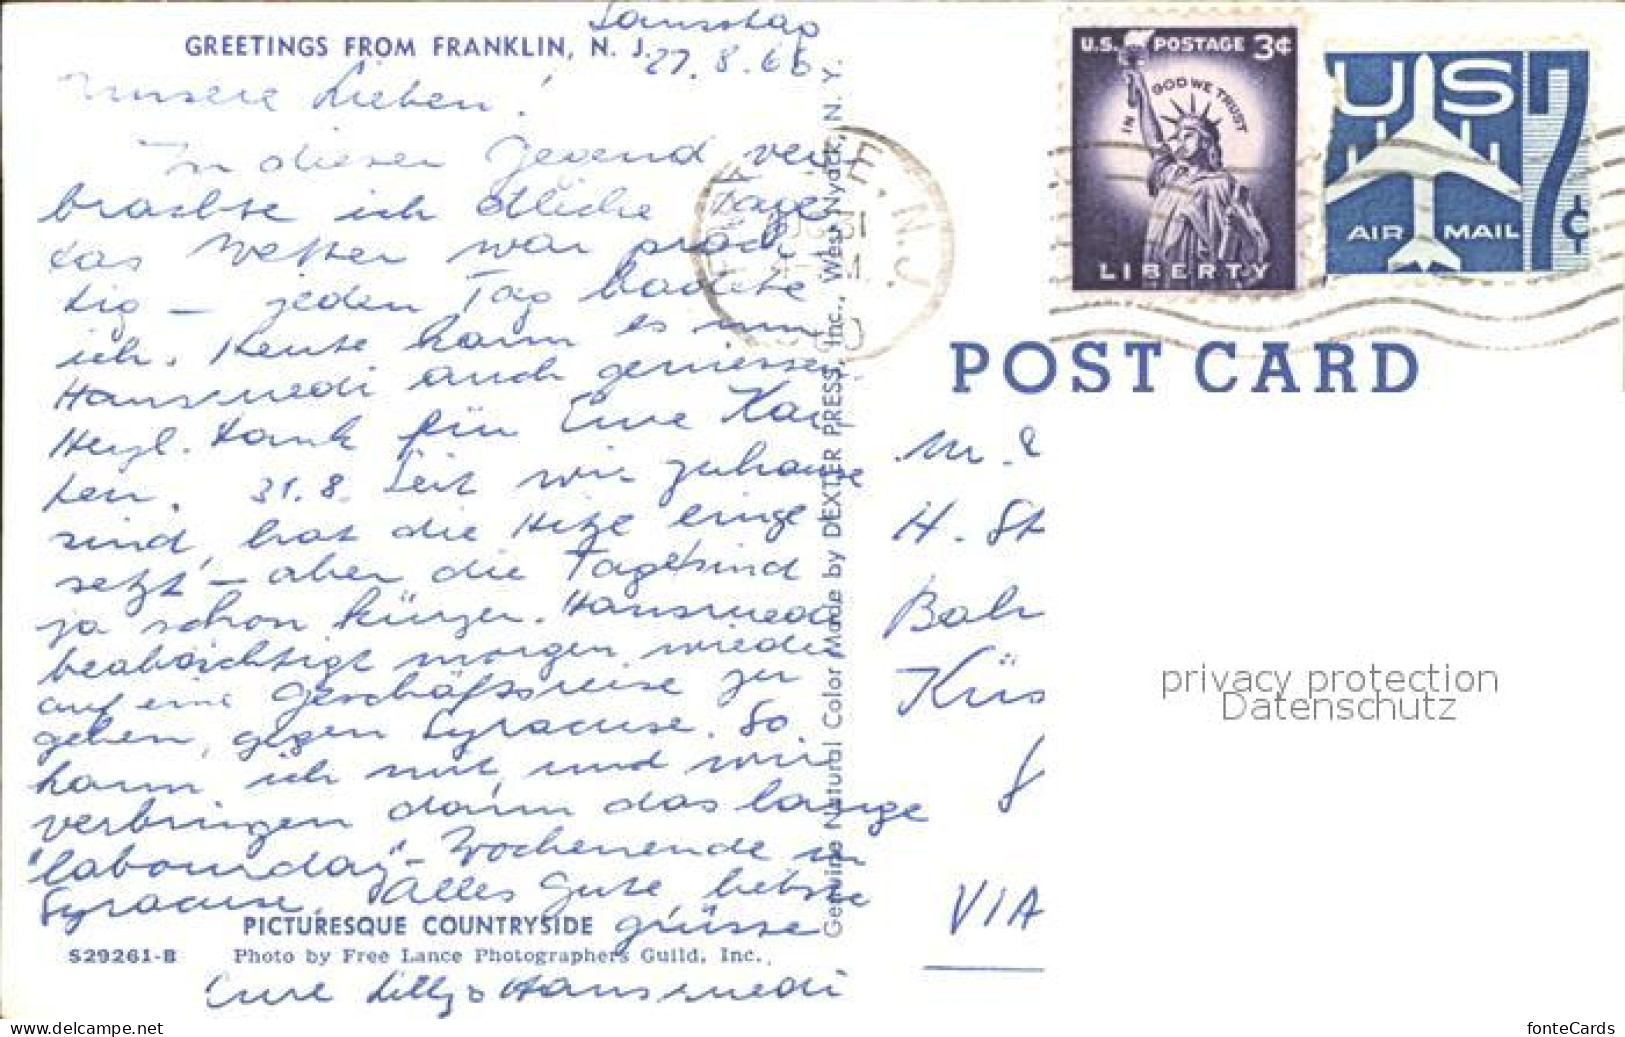 GREETINGS FROM FRANKLIN, N. J.
Samstag
27.8.60
Unsere Lieben!
In dieser Gegend ver-
brachte ich etliche Tage
das Wetter war präch-
tig – jeden Tag badete
ich. Heute kann es nun
Hansruedi auch geniessen.
Herzl. Dank für Eure Kar-
ten. 31.8. Seit wir zuhause
sind, hat die Hitze einge
setzt – aber die Tage sind
ja schon kürzer. Hansruedi
beabsichtigt morgen wieder
auf eine Geschäftsreise zu
gehen, gegen Syracuse. So
kann ich mit, und wir
verbringen dann das lange
"labourday" - Wochenende in
Syracuse. Alles Gute liebste
grüsse
Eure Lilly & Hansruedi
PICTURESQUE COUNTRYSIDE
S29261-B
Photo by Free Lance Photographers Guild, Inc.
Genuine Natural Color Made by DEXTER PRESS, Inc., West Nyack, N. Y.
N.J.
U.S. POSTAGE 3¢
IN GOD WE TRUST
LIBERTY
US 7¢
AIR MAIL
POST CARD
M.
H. St
Bah
Küs
VIA
privacy protection
Datenschutz
www.delcampe.net
fonteCards